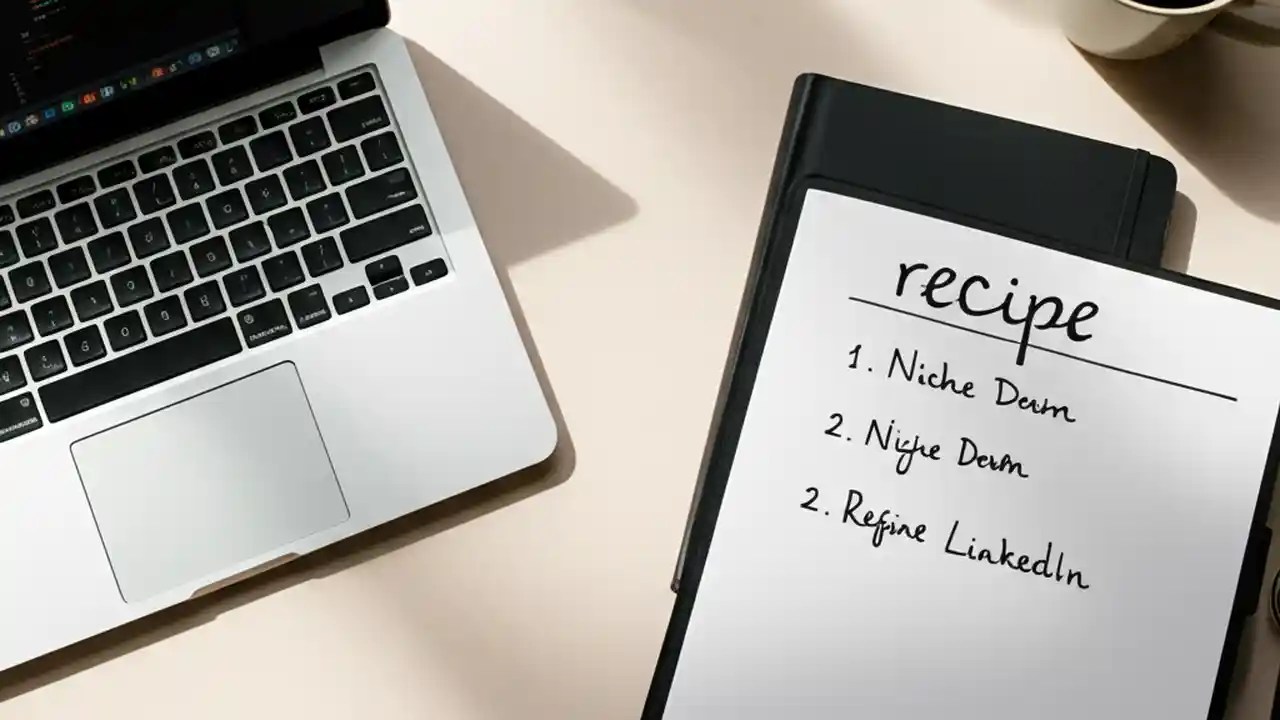 recipe
1. Niche Down
2. Nighe Down
2. Refine LinkedIn